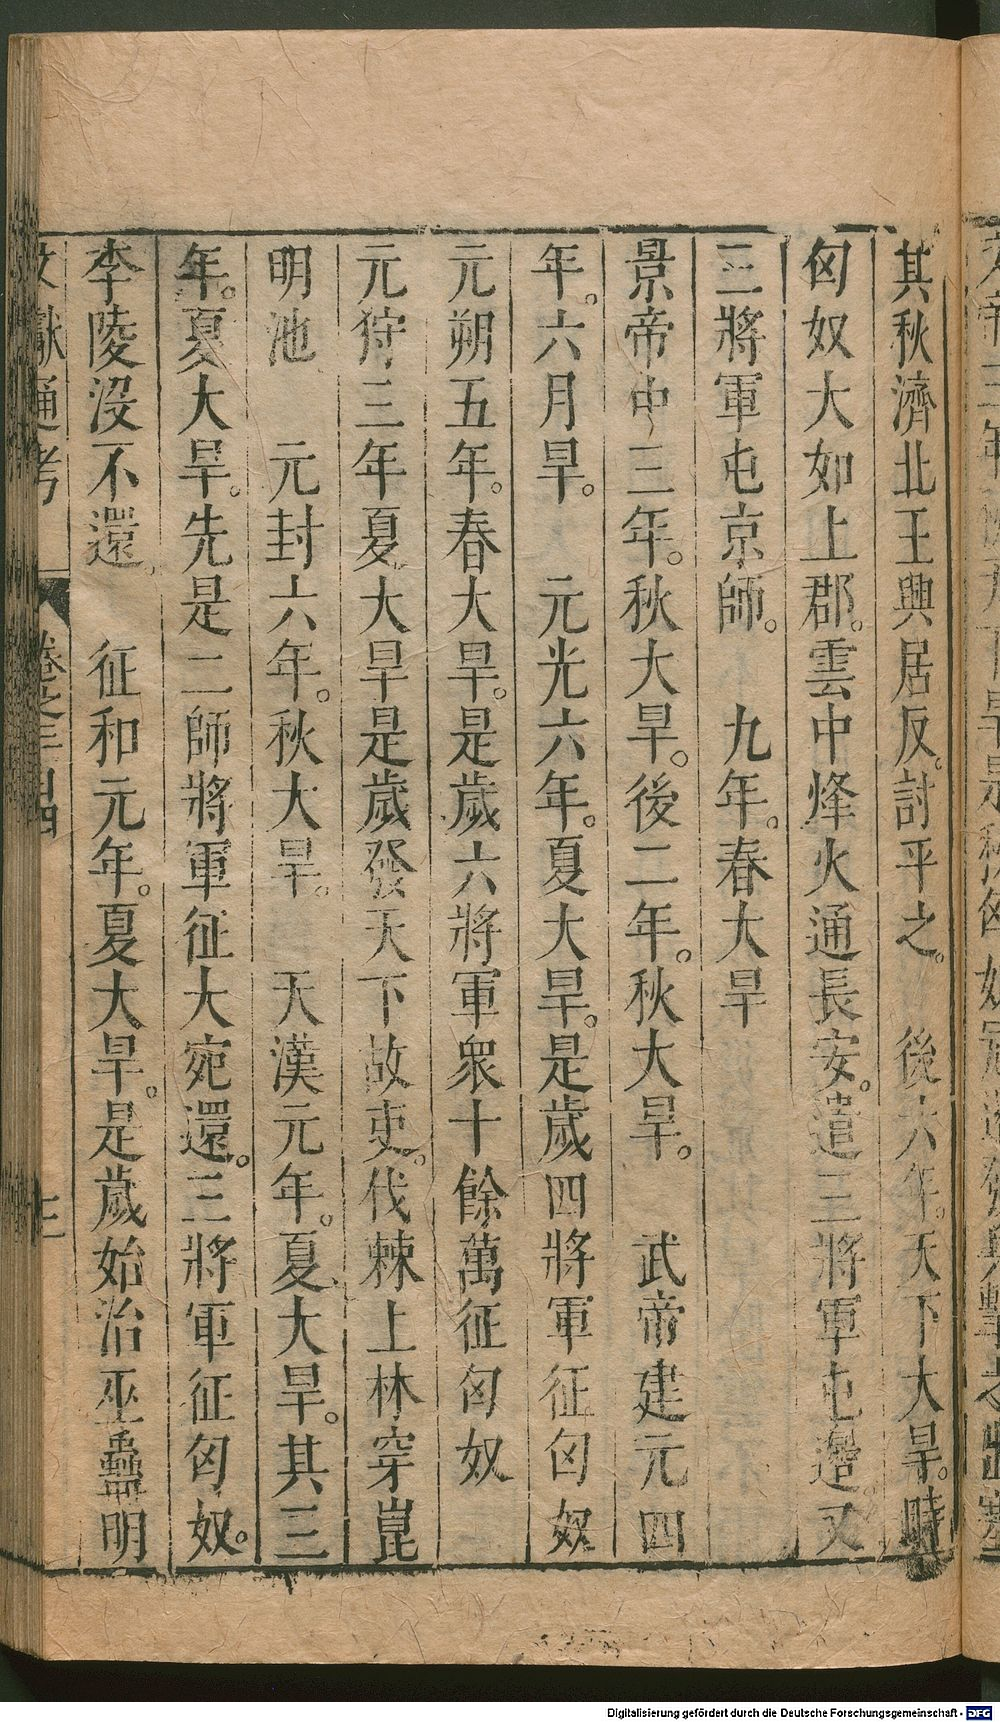 其秋濟北王興居反討平之。　後六年。天下大旱。時
匈奴大如上郡。雲中烽火通長安。遣三將軍屯邊。又
三將軍屯京師。　九年。春大旱
景帝中三年。秋大旱。後二年。秋大旱。　武帝建元四
年。六月旱。　元光六年。夏大旱。是歲四將軍征匈奴
元朔五年。春大旱。是歲六將軍衆十餘萬征匈奴
元狩三年夏大旱是歲發天下故吏。伐棘上林穿崑
明池　元封六年。秋大旱。　天漢元年。夏大旱。其三
年。夏大旱。先是二師將軍征大宛還。三將軍征匈奴。
李陵沒不還。　征和元年。夏大旱。是歲始治巫蠱明
文獻通考　卷之三百四　三
Digitalisierung gefördert durch die Deutsche Forschungsgemeinschaft - DFG